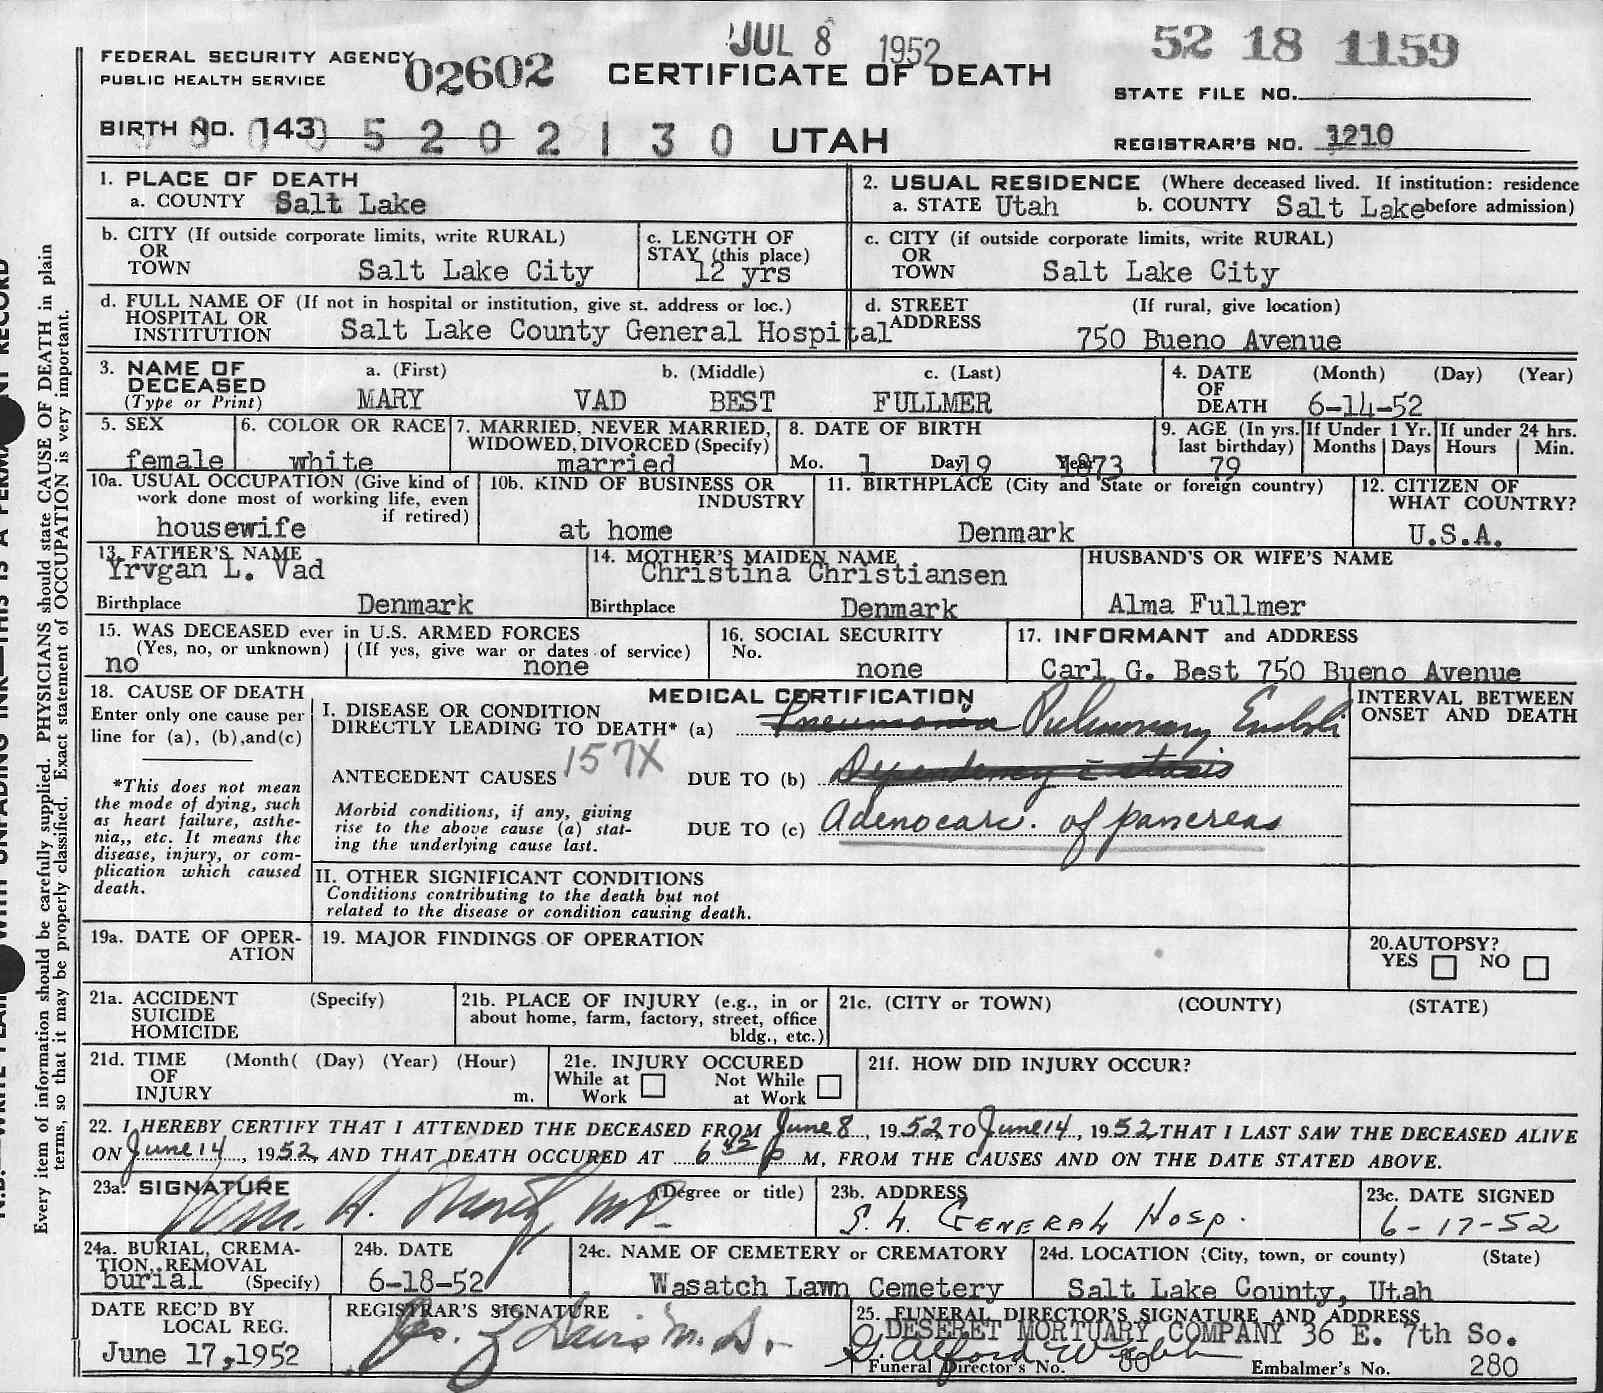 JUL 8 1952
52 18 1159
FEDERAL SECURITY AGENCY
PUBLIC HEALTH SERVICE
02602
CERTIFICATE OF DEATH
STATE FILE NO.
BIRTH NO. 143 5 2 0 2 1 3 0 UTAH
REGISTRAR'S NO. 1210
1. PLACE OF DEATH
a. COUNTY Salt Lake
2. USUAL RESIDENCE (Where deceased lived. If institution: residence
a. STATE Utah b. COUNTY Salt Lake before admission)
b. CITY (If outside corporate limits, write RURAL)
OR
TOWN Salt Lake City
c. LENGTH OF
STAY (this place)
12 yrs
c. CITY (if outside corporate limits, write RURAL)
OR
TOWN Salt Lake City
d. FULL NAME OF (If not in hospital or institution, give st. address or loc.)
HOSPITAL OR
INSTITUTION Salt Lake County General Hospital
d. STREET (If rural, give location)
ADDRESS
750 Bueno Avenue
3. NAME OF
DECEASED
(Type or Print)
a. (First) b. (Middle) c. (Last)
MARY VAD BEST FULLMER
4. DATE (Month) (Day) (Year)
OF
DEATH 6-14-52
5. SEX
female
6. COLOR OR RACE
white
7. MARRIED, NEVER MARRIED,
WIDOWED, DIVORCED (Specify)
married
8. DATE OF BIRTH
Mo. 1 Day 19 Year 1873
9. AGE (In yrs.
last birthday)
79
If Under 1 Yr.
Months Days
If under 24 hrs.
Hours Min.
10a. USUAL OCCUPATION (Give kind of
work done most of working life, even
if retired)
housewife
10b. KIND OF BUSINESS OR
INDUSTRY
at home
11. BIRTHPLACE (City and State or foreign country)
Denmark
12. CITIZEN OF
WHAT COUNTRY?
U.S.A.
13. FATHER'S NAME
Yrvgan L. Vad
Birthplace Denmark
14. MOTHER'S MAIDEN NAME
Christina Christiansen
Birthplace Denmark
HUSBAND'S OR WIFE'S NAME
Alma Fullmer
15. WAS DECEASED ever in U.S. ARMED FORCES
(Yes, no, or unknown) (If yes, give war or dates of service)
no none
16. SOCIAL SECURITY
No.
none
17. INFORMANT and ADDRESS
Carl G. Best 750 Bueno Avenue
18. CAUSE OF DEATH
Enter only one cause per
line for (a), (b), and (c)
*This does not mean
the mode of dying, such
as heart failure, asthe-
nia,, etc. It means the
disease, injury, or com-
plication which caused
death.
MEDICAL CERTIFICATION
I. DISEASE OR CONDITION
DIRECTLY LEADING TO DEATH* (a) Pneumonia Pulmonary Emboli
ANTECEDENT CAUSES 157X DUE TO (b) Dependency c stasis
Morbid conditions, if any, giving
rise to the above cause (a) stat-
ing the underlying cause last.
DUE TO (c) Adenocarc. of pancreas
INTERVAL BETWEEN
ONSET AND DEATH
II. OTHER SIGNIFICANT CONDITIONS
Conditions contributing to the death but not
related to the disease or condition causing death.
19a. DATE OF OPER-
ATION
19. MAJOR FINDINGS OF OPERATION
20. AUTOPSY?
YES NO
21a. ACCIDENT (Specify)
SUICIDE
HOMICIDE
21b. PLACE OF INJURY (e.g., in or
about home, farm, factory, street, office
bldg., etc.)
21c. (CITY or TOWN) (COUNTY) (STATE)
21d. TIME (Month( (Day) (Year) (Hour)
OF
INJURY m.
21e. INJURY OCCURED
While at Work Not While at Work
21f. HOW DID INJURY OCCUR?
22. I HEREBY CERTIFY THAT I ATTENDED THE DECEASED FROM June 8, 1952 TO June 14, 1952 THAT I LAST SAW THE DECEASED ALIVE
ON June 14, 1952, AND THAT DEATH OCCURED AT 6 45 P M, FROM THE CAUSES AND ON THE DATE STATED ABOVE.
23a. SIGNATURE (Degree or title)
Wm. H. MD.
23b. ADDRESS
S. L. GENERAL HOSP.
23c. DATE SIGNED
6-17-52
24a. BURIAL, CREMA-
TION, REMOVAL
burial (Specify)
24b. DATE
6-18-52
24c. NAME OF CEMETERY or CREMATORY
Wasatch Lawn Cemetery
24d. LOCATION (City, town, or county) (State)
Salt Lake County, Utah
DATE REC'D BY
LOCAL REG.
June 17, 1952
REGISTRAR'S SIGNATURE
Davis M.D.
25. FUNERAL DIRECTOR'S SIGNATURE AND ADDRESS
DESERET MORTUARY COMPANY 36 E. 7th So.
Funeral Director's No. 80 Embalmer's No. 280
Every item of information should be carefully supplied. PHYSICIANS should state CAUSE OF DEATH in plain
terms, so that it may be properly classified. Exact statement of OCCUPATION is very important.